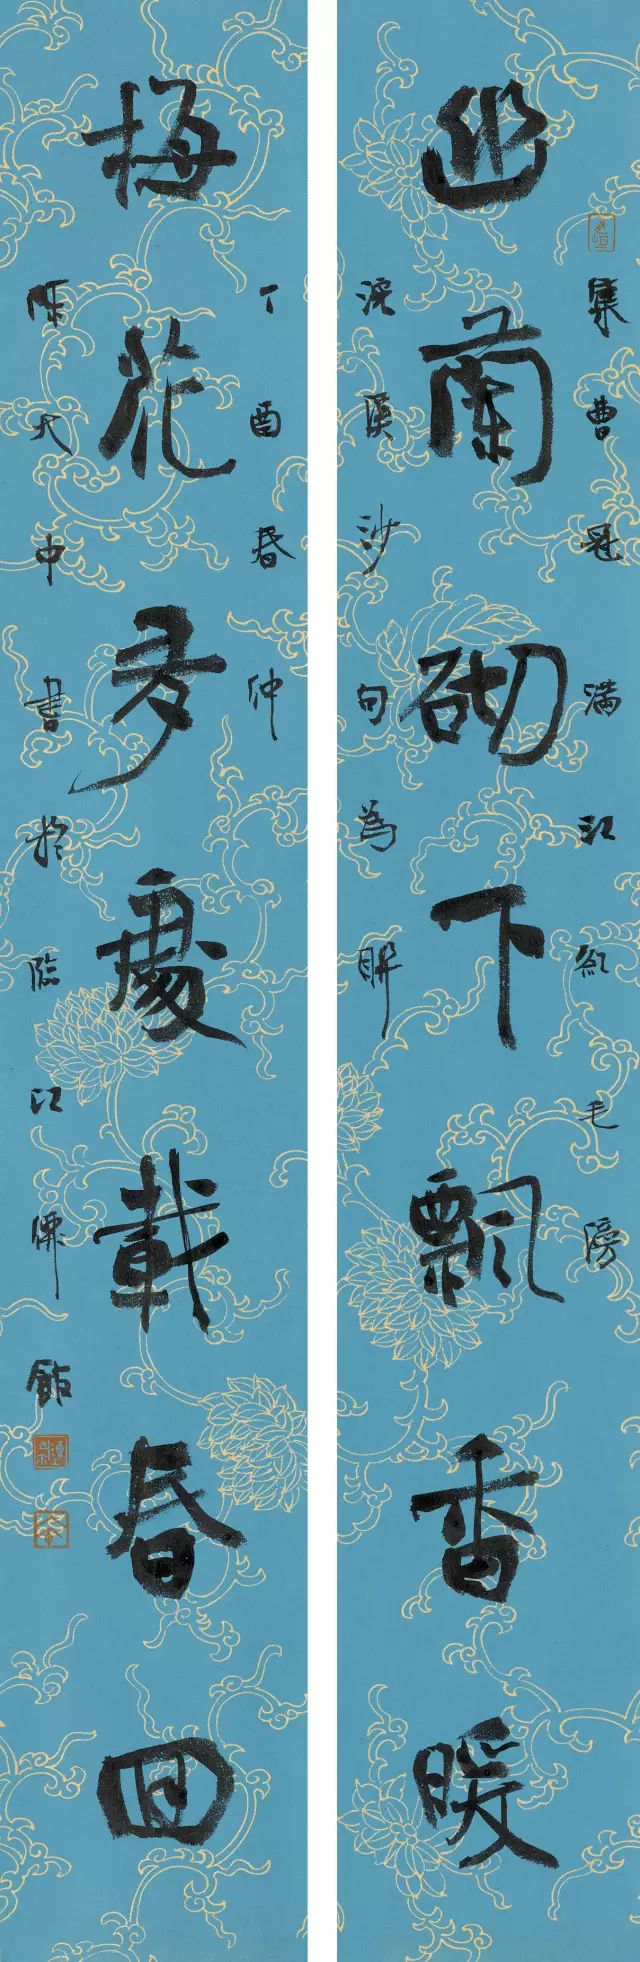 集曹冠滿江紅毛滂
幽蘭砌下飄香暖
浣溪沙句為聯
丁酉春仲
梅花多處載春回
陳大中書於臨江佛舘